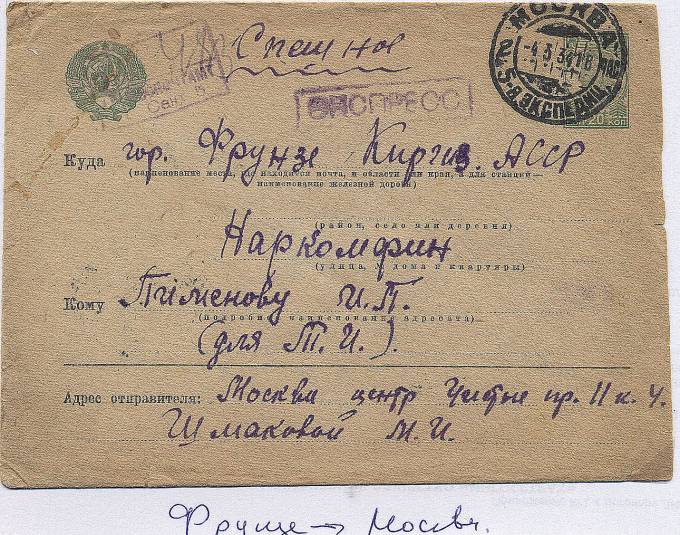 Спешное
ЭКСПРЕСС
МОСКВА
5-я ЭКСПЕДИЦ.
20 коп
Куда гор. Фрунзе Киргиз. АССР
(наименование места, где находится почта, и области или края, а для станций—
наименование железной дороги)
(район, село или деревня)
Наркомфин
(улица, № дома и квартиры)
Кому Пименову И.П.
(подробное наименование адресата)
(для Т.И.).
Адрес отправителя: Москва центр Чистые пр. 11 к. 4.
Шмаковой М.И.
Фрунзе → Москва.